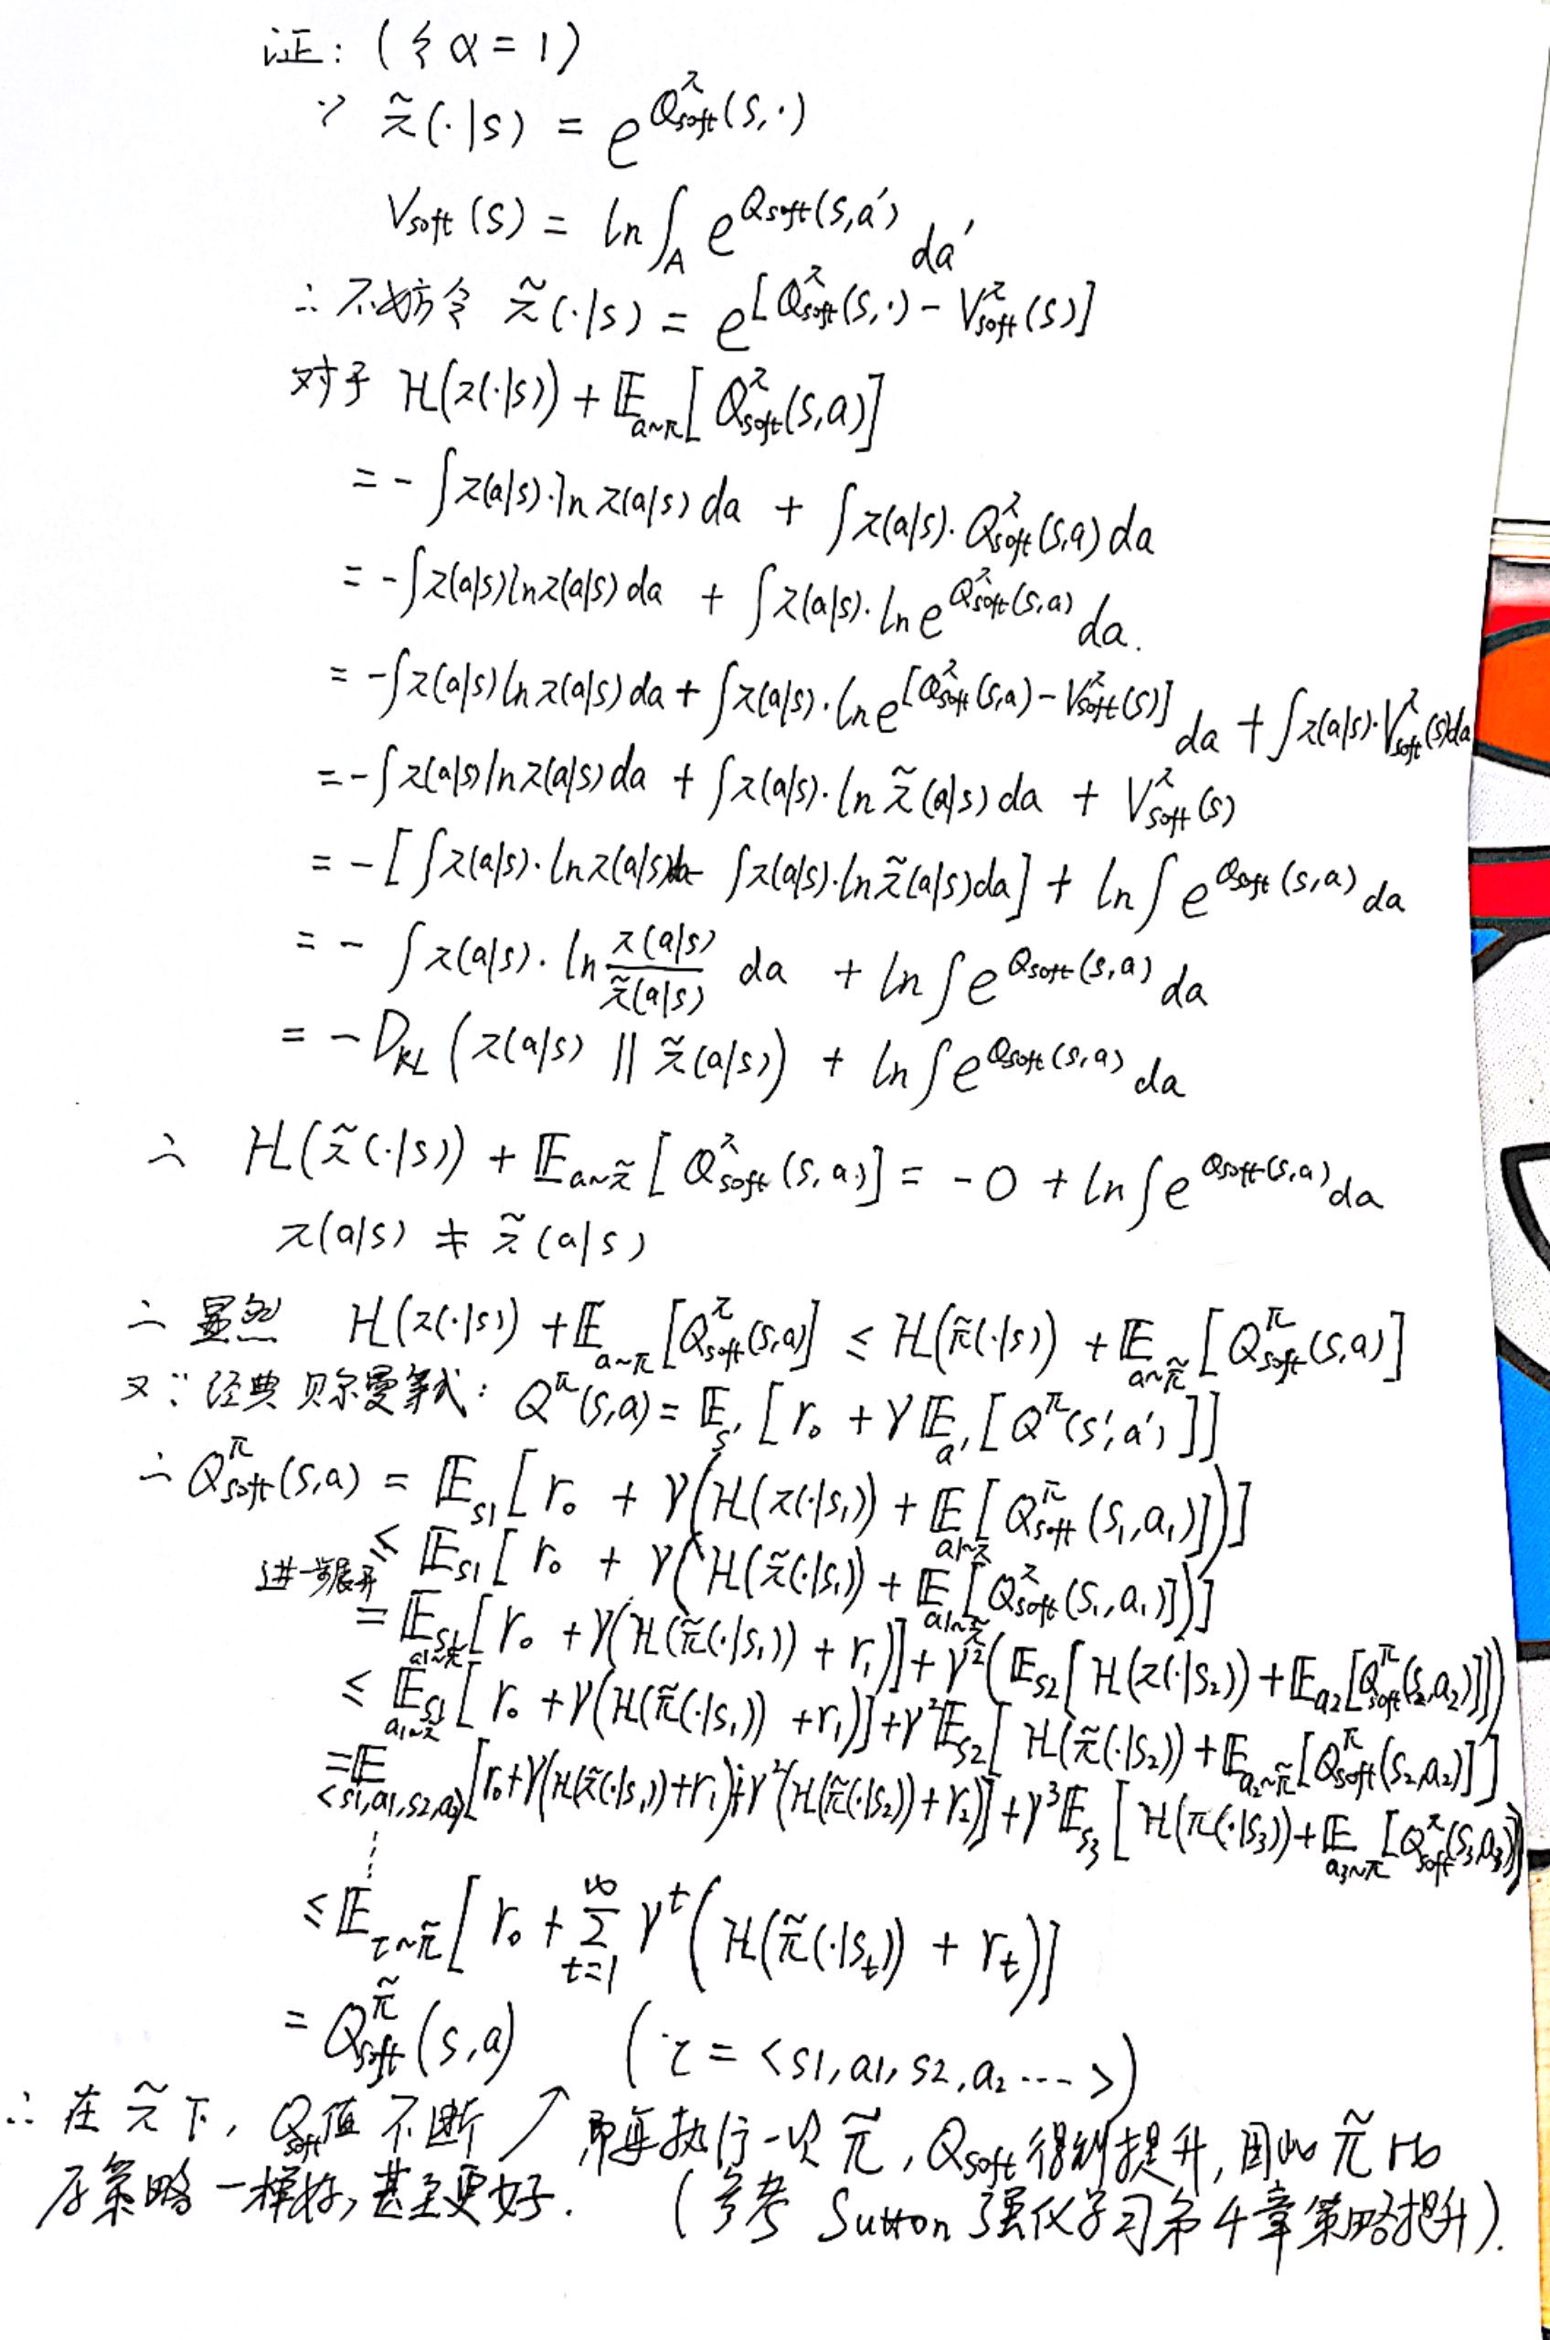 证：(令 α = 1)
∵ π̃(·|s) = e^{Q^π_soft(s,·)}
V_soft(s) = ln∫_A e^{Q_soft(s,a')} da'
∴ 不妨令 π̃(·|s) = e^{[Q^π_soft(s,·) - V^π_soft(s)]}
对于 H(π(·|s)) + 𝔼_{a~π}[Q^π_soft(s,a)]
= - ∫π(a|s)·ln π(a|s) da + ∫π(a|s)·Q^π_soft(s,a) da
= -∫π(a|s) ln π(a|s) da + ∫π(a|s)·ln e^{Q^π_soft(s,a)} da.
= -∫π(a|s) ln π(a|s) da + ∫π(a|s)·ln e^{[Q^π_soft(s,a) - V^π_soft(s)]} da + ∫π(a|s)·V^π_soft(s)da
= -∫π(a|s) ln π(a|s) da + ∫π(a|s)·ln π̃(a|s) da + V^π_soft(s)
= -[∫π(a|s)·ln π(a|s)da - ∫π(a|s)·ln π̃(a|s)da] + ln∫e^{Q_soft(s,a)} da
= - ∫π(a|s)·ln π(a|s)/π̃(a|s) da + ln∫e^{Q_soft(s,a)} da
= -D_KL(π(a|s) || π̃(a|s)) + ln∫e^{Q_soft(s,a)} da
∴ H(π̃(·|s)) + 𝔼_{a~π̃}[Q^π_soft(s,a)] = -0 + ln∫e^{Q_soft(s,a)} da
π(a|s) ≠ π̃(a|s)
∴ 显然 H(π(·|s)) + 𝔼_{a~π}[Q^π_soft(s,a)] ≤ H(π̃(·|s)) + 𝔼_{a~π̃}[Q^π_soft(s,a)]
又∵ 经典贝尔曼等式：Q^π(s,a) = 𝔼_{s'}[r₀ + γ𝔼_{a'}[Q^π(s',a')]]
∴ Q^π_soft(s,a) = 𝔼_{s1}[r₀ + γ(H(π(·|s₁)) + 𝔼_{a1~π}[Q^π_soft(s₁,a₁)])]
≤ 𝔼_{s1}[r₀ + γ(H(π̃(·|s₁)) + 𝔼_{a1~π̃}[Q^π_soft(s₁,a₁)])]
进一步展开
= 𝔼_{s1, a1~π̃}[r₀ + γ(H(π̃(·|s₁)) + r₁)] + γ²(𝔼_{s2}[H(π(·|s₂)) + 𝔼_{a2}[Q^π_soft(s₂,a₂)]])
≤ 𝔼_{s1, a1~π̃}[r₀ + γ(H(π̃(·|s₁)) + r₁)] + γ²𝔼_{s2}[H(π̃(·|s₂)) + 𝔼_{a2~π̃}[Q^π_soft(s₂,a₂)]]
= 𝔼_{<s1,a1,s2,a2>}[r₀ + γ(H(π̃(·|s₁)) + r₁) + γ²(H(π̃(·|s₂)) + r₂)] + γ³𝔼_{s3}[H(π(·|s₃)) + 𝔼_{a3~π}[Q^π_soft(s₃,a₃)]]
⋮
≤ 𝔼_{τ~π̃}[r₀ + Σ_{t=1}^∞ γ^t(H(π̃(·|s_t)) + r_t)]
= Q^π̃_soft(s,a) (τ = <s1,a1,s2,a2 ···>)
∴ 在 π̃ 下，Q_soft值不断↗ 即每执行一次 π̃，Q_soft得到提升，因此 π̃ 和
原策略一样好，甚至更好. (参考 Sutton 强化学习第4章策略提升).